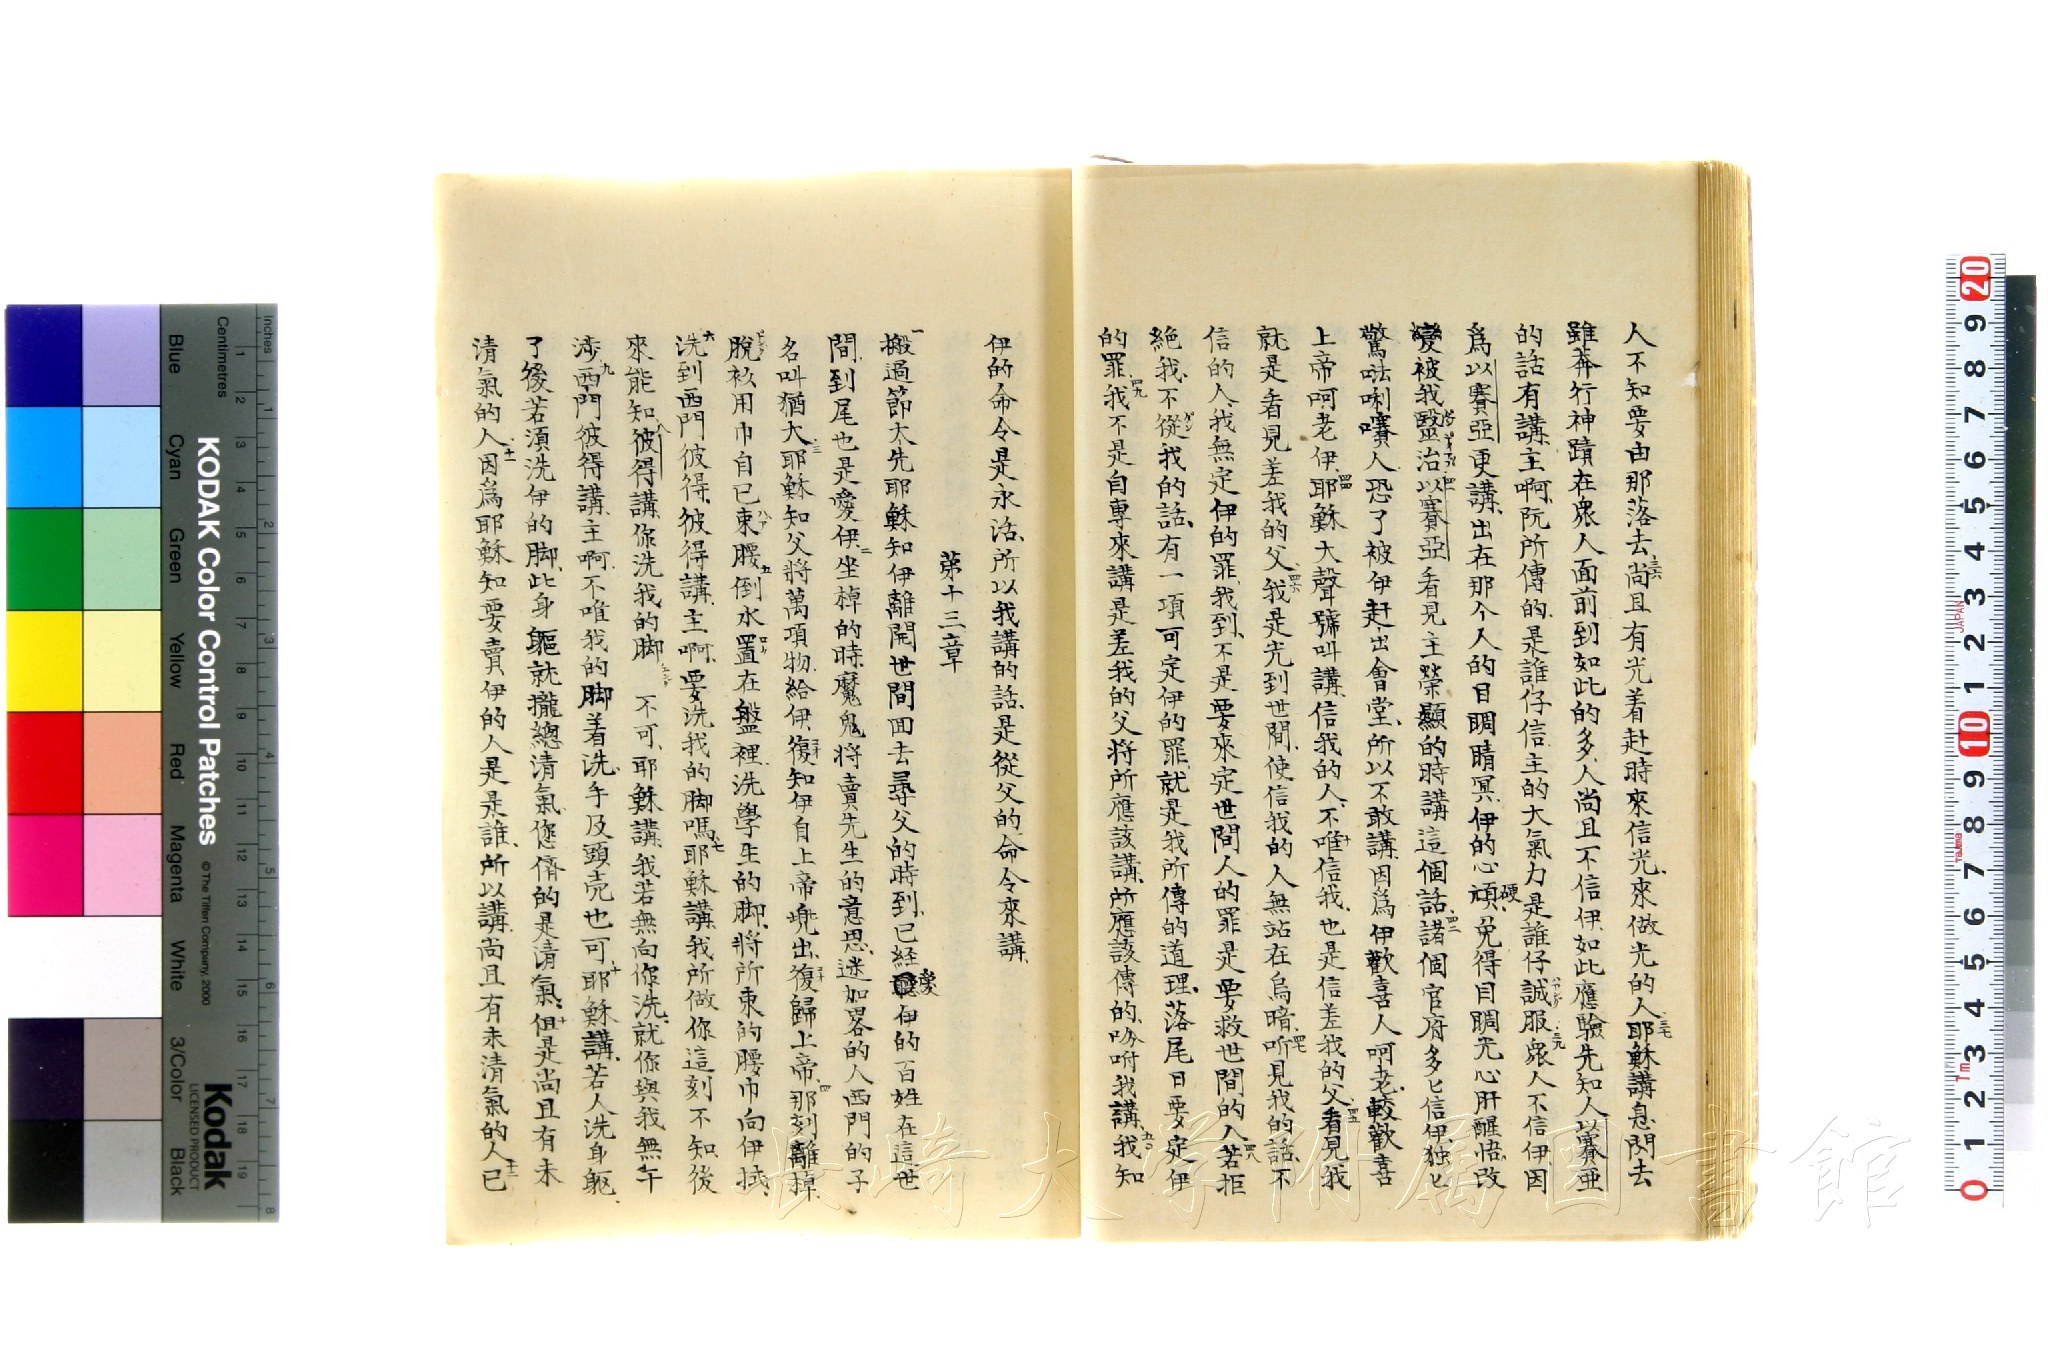 人不知要由那落去三六尚且有光着赴時來信光、來做光的人三七耶穌講息閃去
雖奔行神蹟在衆人面前到如此的多、人尚且不信伊、如此應驗先知人以賽亞
的話有講、主啊、阮所傳的、是誰仔信、主的大氣力是誰仔誠服三九衆人不信伊、因
爲以賽亞更講、出在那个人的目睭睛冥、伊的心頑硬、免得目睭光心肝醒悟、改
變被我醫治四一以賽亞看見主榮顯的時講這個話、四二諸個官府多匕信伊、独匕
驚㗻唎嚽人恐了被伊赶出會堂、所以不敢講、因爲伊歡喜人呵老、較歡喜
上帝呵老伊、四四耶穌大聲號叫講、信我的人、不唯信我、也是信差我的父、四五看見我
就是看見差我的父、四六我是光到世間、使信我的人無站在烏暗、四七听見我的話、不
信的人、我無定伊的罪、我到、不是要來定世間人的罪、是要救世間的人、四八若拒
絶我、不從我的話、有一項可定伊的罪、就是我所傳的道理、落尾日要定伊
的罪、四九我不是自專來講、是差我的父、将所應該講、所應該傳的、吩咐我講、五〇我知
伊的命令是永活、所以我講的話、是從父的命令來講、
第十三章
一搬過節太先耶穌知伊離開世間回去尋父的時到、已經愛伊的百姓在這世
間、到尾也是愛伊二坐棹的時、魔鬼將賣先生的意思、迷加畧的人西門的子
名叫猶大、三耶穌知父將萬項物、給伊、復知伊自上帝𠒇出、復歸上帝、四那刻離棹、
脫衫用巾自已束腰、五倒水置在盤裡、洗學生的脚、將所束的腰巾向伊拭、
六洗到西門彼得、彼得講、主啊、要洗我的脚嗎、七耶穌講、我所做你這刻不知、後
來能知、八彼得講、你洗我的脚 不可、耶穌講、我若無向你洗、就你與我無干
涉、九西門彼得講、主啊、不唯我的脚着洗、手及頭売也可、十耶穌講、若人洗身軀
了後、若須洗伊的脚、此身軀就攏總清氣、您儕的是清氣、但是尚且有未
清氣的人、十一因爲耶穌知要賣伊的人是是誰、所以講、尚且有未清氣的人、十二已
KODAK Color Control Patches
© The Tiffen Company, 2000
Kodak
LICENSED PRODUCT
Centimetres
Inches
Blue
Cyan
Green
Yellow
Red
Magenta
White
3/Color
Black
JAPAN
Tajima
長崎大学附属図書館